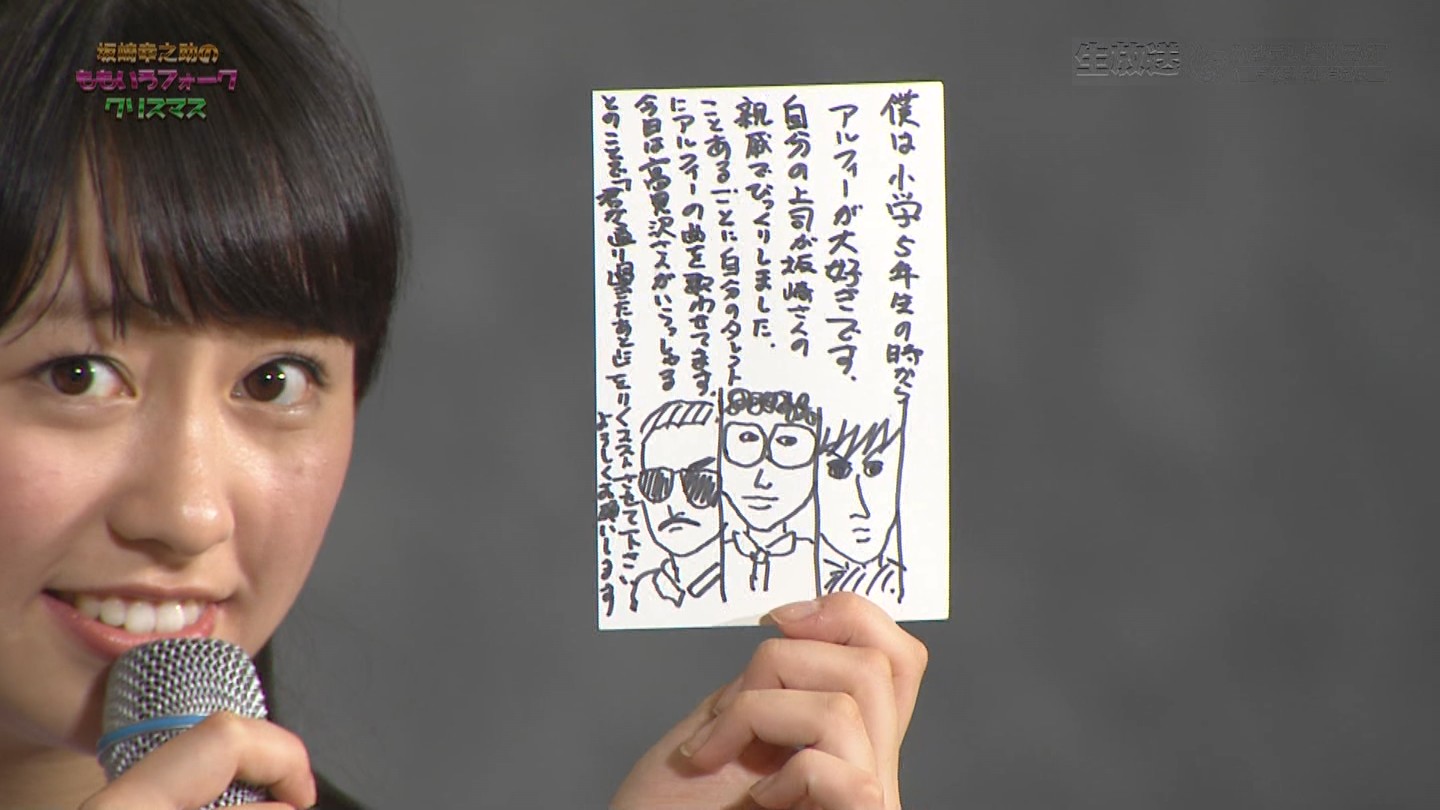 坂崎幸之助の
ももいろフォーク
クリスマス
生放送
僕は小学5年生の時から
アルフィーが大好きです。
自分の上司が坂崎さんの
親戚でびっくりしました。
ことあるごとに自分のタレント
にアルフィーの曲を歌わせてます。
今日は高見沢さんがいらっしゃる
とのことで「君が通り過ぎたあとに」をリクエストさせて下さい。
よろしくお願いします